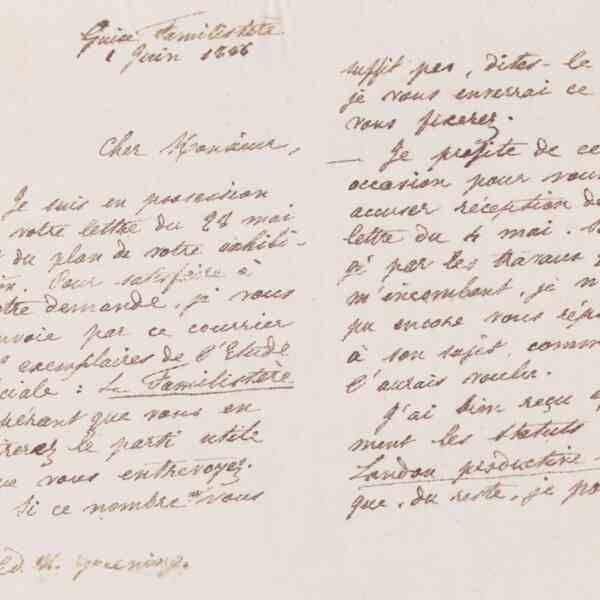 Guise Familistère
1 Juin 1886
Cher Monsieur,
Je suis en possession
votre lettre du 28 mai
du plan de votre exhibi-
Pour satisfaire à
otre demande, je vous
nvoie par ce courrier
exemplaires de l'Etude
ciale : Le Familistère
pérant que vous en
irerez le parti utile
ue vous entrevoyez.
Si ce nombre ne vous
Ed. W. Greening.
suffit pas, dites-le
je vous enverrai ce
vous fixerez.
— Je profite de ce
occasion pour vous
accuser réception de
lettre du 4 mai.
gé par les travaux
m'incombent, je n'
pu encore vous rép
à son sujet, comm
l'aurais voulu.
J'ai bien reçu
ment les statuts
London productive
que, du reste, je po